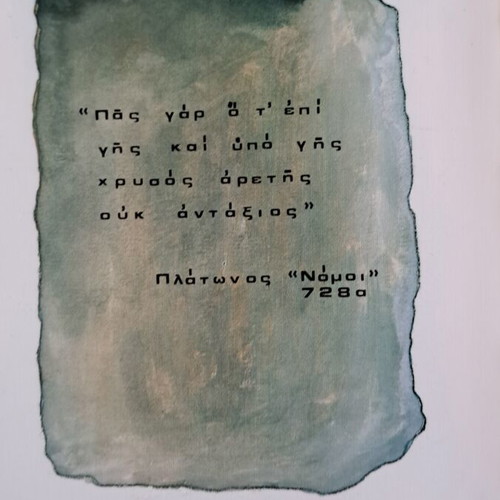 «Πᾶς γάρ ὅ τ' ἐπί
γῆς καί ὑπό γῆς
χρυσός ἀρετῆς
οὐκ ἀντάξιος”
Πλάτωνος «Νόμοι»
728α